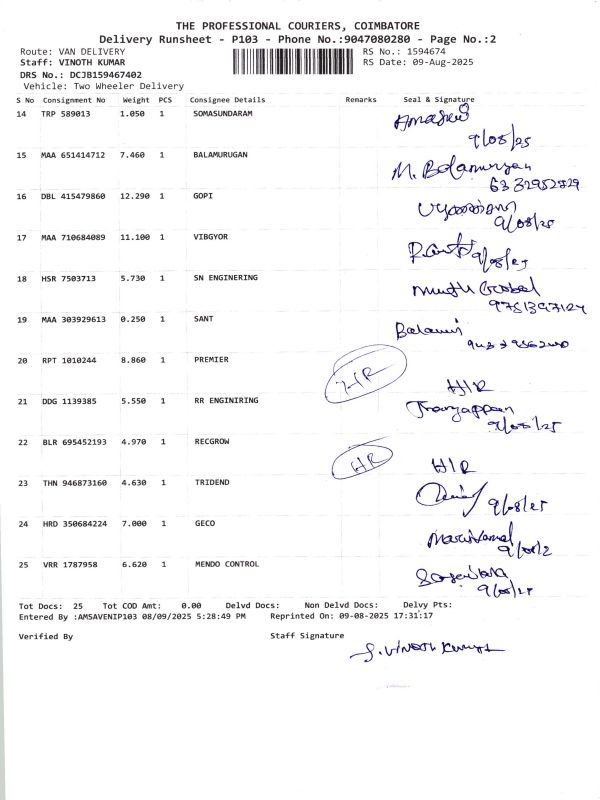 THE PROFESSIONAL COURIERS, COIMBATORE
Delivery Runsheet - P103 - Phone No.:9047080280 - Page No.:2
Route: VAN DELIVERY RS No.: 1594674
Staff: VINOTH KUMAR RS Date: 09-Aug-2025
DRS No.: DCJB159467402
Vehicle: Two Wheeler Delivery
S No Consignment No Weight PCS Consignee Details Remarks Seal & Signature
14 TRP 589013 1.050 1 SOMASUNDARAM
9/08/25
15 MAA 651414712 7.460 1 BALAMURUGAN M. Balamurugan
16 DBL 415479860 12.290 1 GOPI
9/08/25
17 MAA 710684089 11.100 1 VIBGYOR
9/08/25
18 HSR 7503713 5.730 1 SN ENGINERING
19 MAA 303929613 0.250 1 SANT
20 RPT 1010244 8.860 1 PREMIER H/R
H/R
21 DDG 1139385 5.550 1 RR ENGINIRING
9/08/25
22 BLR 695452193 4.970 1 RECGROW H/R
H/R
23 THN 946873160 4.630 1 TRIDEND
9/08/25
24 HRD 350684224 7.000 1 GECO
25 VRR 1787958 6.620 1 MENDO CONTROL
9/08/25
Tot Docs: 25 Tot COD Amt: 0.00 Delvd Docs: Non Delvd Docs: Delvy Pts:
Entered By :AMSAVENIP103 08/09/2025 5:28:49 PM Reprinted On: 09-08-2025 17:31:17
Verified By Staff Signature
S. VINOTH KUMAR